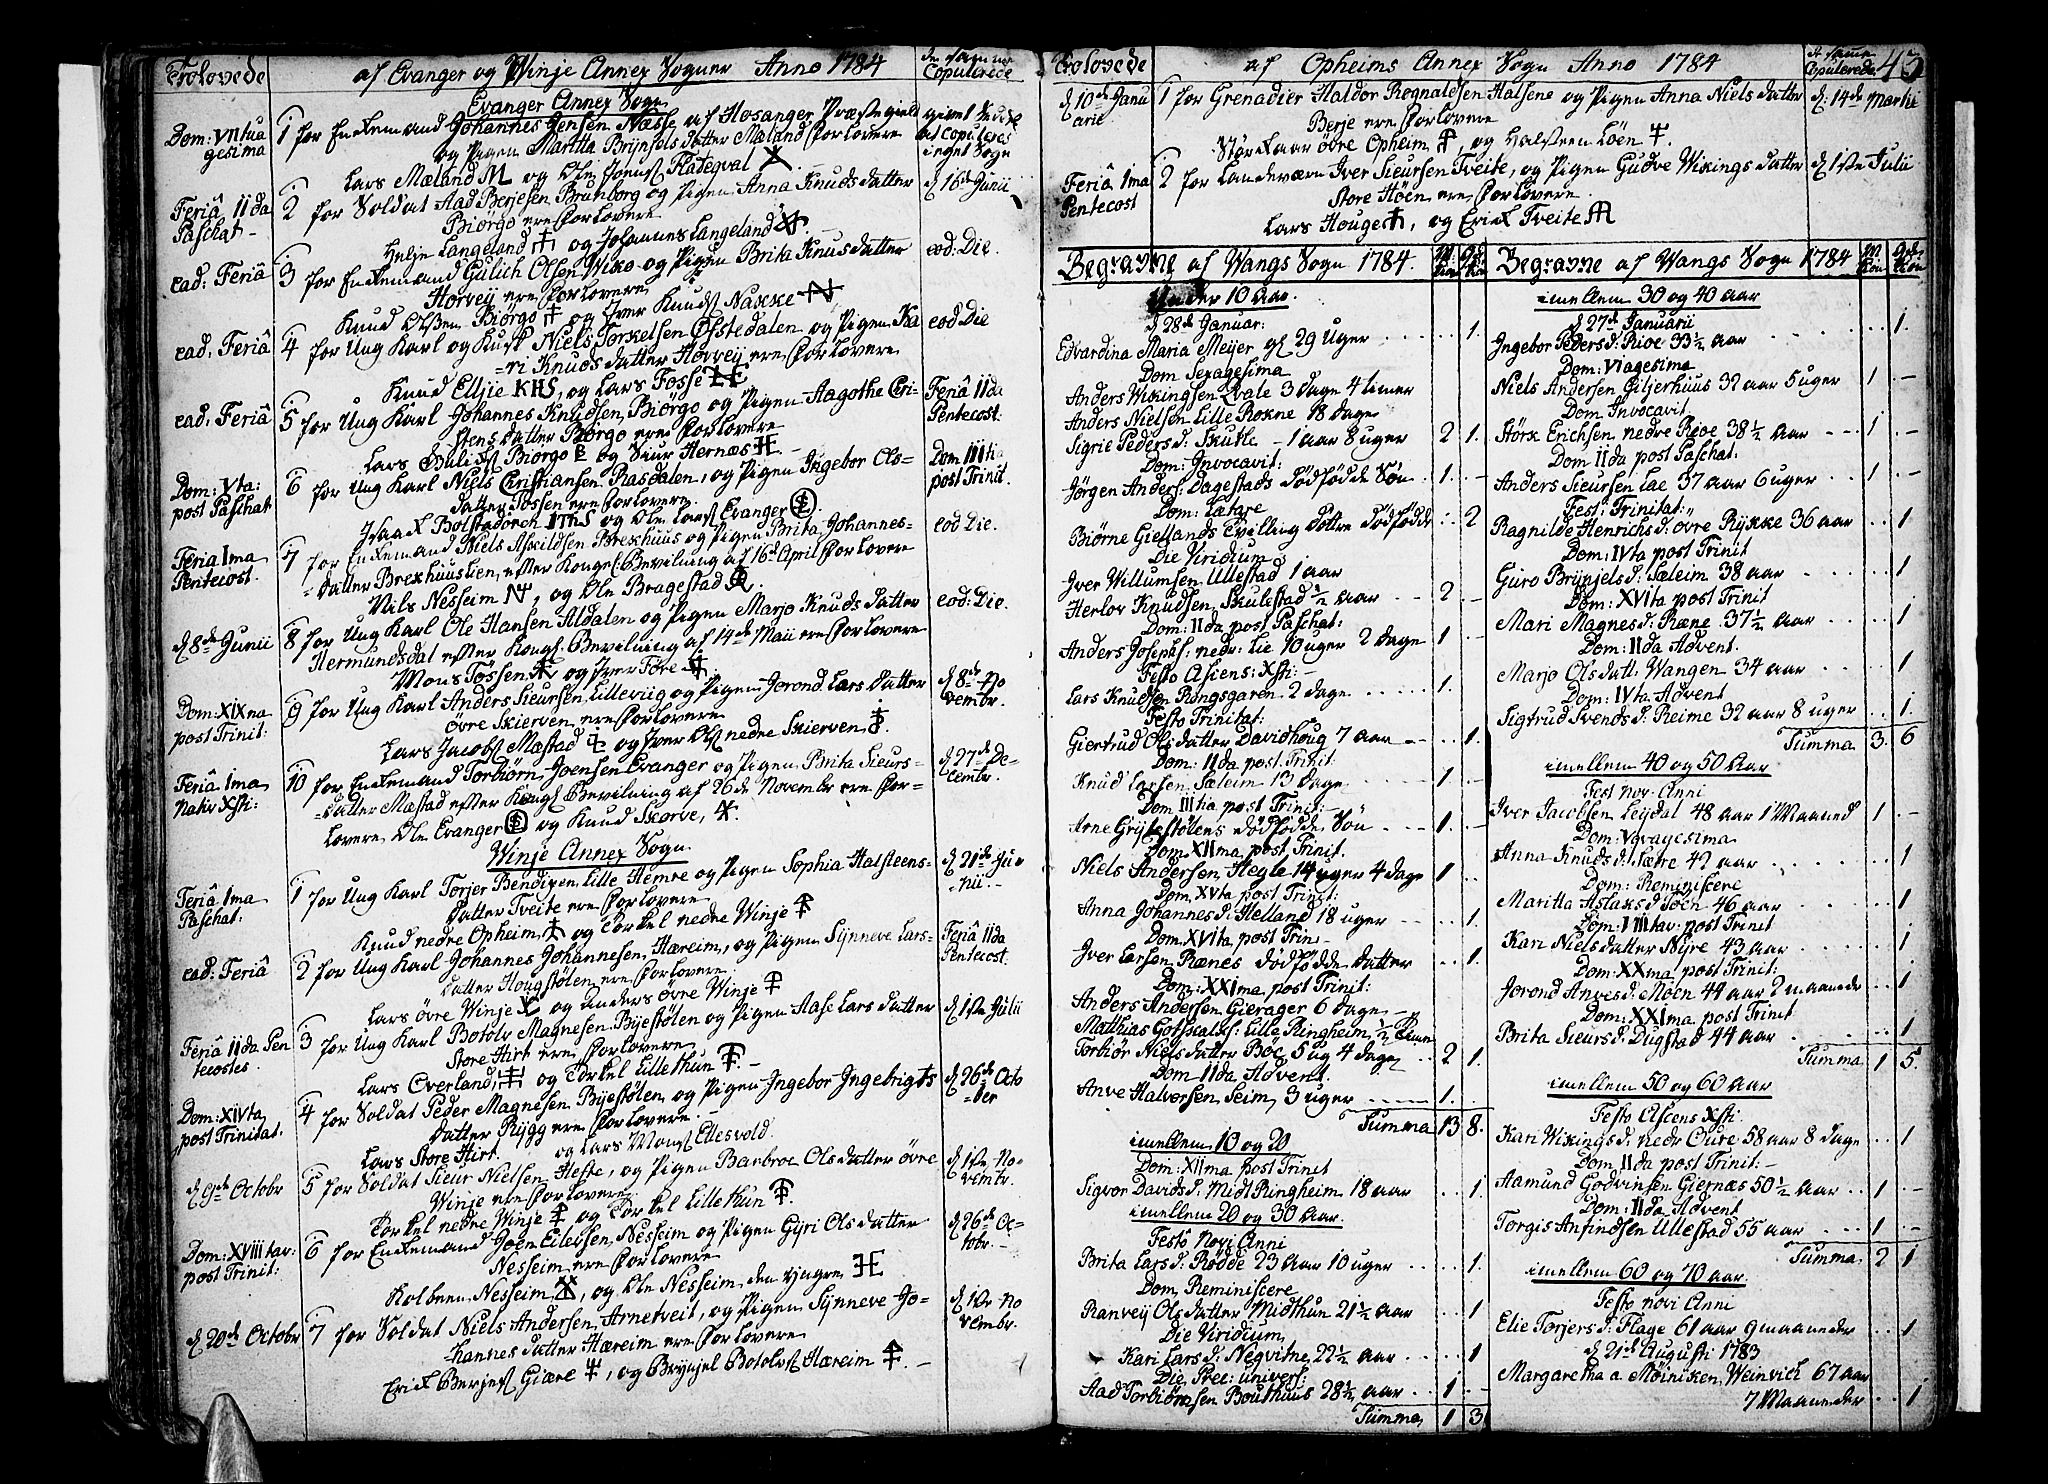 Trolovede
af Evanger og Winje Annex Sogner Anno 1784
Copulerede
Evanger Annex Sogn
Dom: VIItua
gesima
1 for Enkemand Johannes Jensen Næsse af Hosanger Præstegield
og Pigen Maritta Brynjels datter Mæland Forlovere
Lars Mæland M og Ole Joens Flategval
at copuleres
i eget Sogn
Feriâ IIda
Paschat
2 for Soldat Aad Berjesen Brunborg og Pigen Anna Knuds datter
Biörgo ere Forlovere
Helje Langeland og Johannes Langeland
d 16de Junii
ead: Feriâ
3 for Enkemand Gulich Olsen Wixo og Pigen Brita Knusdatter
Horvey ere Forlovere
Knud Olsen Biörgo og Iver Knuds Nakke
eod: Die.
ead: Feriâ
4 for Ung Karl og Kusk Niels Torkelsen Ofstedalen og Pigen Ka
=ri Knuds datter Horvey ere Forlovere
Knud Elljie KHS, og Lars Fosse
eod Die
ead: Feriâ
5 for Ung Karl Johannes Knudsen Biörgo og Pigen Aagothe Cri-
stens datter Biörgo ere Forlovere
Lars Gulichs Biörgo og Siur Hernæs
Feriâ IIda
Pentecost.
Dom: Vta:
post Paschat
6 for Ung Karl Niels Christiansen Rasdalen, og Pigen Ingebor Ols-
datter Fossen ere Forlovere
Isaach Bolstadoren og Ole Lars Evanger
Dom IIItia
post Trinit.
Feria Ima
Pentecost.
7 for Enkemand Niels Askildsen Brekhuus og Pigen Brita Johannes-
=datter Brekhuuslien, efter Kongel: Bevilning af 16de April Forlovere
Nils Nesheim, og Ole Bragestad
eod Die.
d 8de Junii
8 for Ung Karl Ole Hansen Aldalen og Pigen Marjo Knuds datter
Hermundsdal efter Kongl: Bevilning af 14de Maii ere Forlovere
Mons Fossen og Iver Fore
eod: Die.
Dom: XIXna
post Trinit:
9 for Ung Karl Anders Sieursen Lilleviig og Pigen Jorond Lars datter
övre Skierven ere Forlovere
Lars Jacobs Mæstad og Iver Ols nedre Skierven
d 8de No
vembr.
Feriâ Ima
Nativ Xsti:
10 for Enkemand Torbiörn Joensen Evanger og Pigen Brita Sieurs-
=datter Mæstad efter Kongl Bevilning af 26de Novembr ere For-
lovere Ole Evanger og Knud Skorve
d 27de De-
cembr.
Winje Annex Sogn
Feriâ Ima
Paschat:
1 for Ung Karl Torjer Bendixen Lille Hemre og Pigen Sophia Halsteens-
datter Tveite ere Forlovere
Knud nedre Opheim og Torkel nedre Winje
d 21de Ju
nii.
ead: Feriâ
2 for Ung Karl Johannes Johannesen Hæreim, og Pigen Synneve Lars-
datter Hougstölen ere Forlovere
Lars övre Winje og anders övre Winje
Feriâ IIda
Pentecost.
Feriâ IIda Pen
tecostes
3 for Ung Karl Botolv Magnesen Byestölen og Pigen Aase Lars datter
Store Hirt ere Forlovere
Lars Overland og Torkel Lillethun
d 1ste Julii
Dom: XIVta
post Trinitat.
4 for Soldat Peder Magnesen Byestölen og Pigen Ingebor Ingebrigts
datter Rygg ere Forlovere
Lars Store Hirt. og Lars Mons Ellesvold.
d 26de Octo
=ber
d 9de Octobr
5 for Soldat Sieur Nielsen Hesse, og Pigen Barbroe Olsdatter övre
Winje ere Forlovere
Torkel nedre Winje og Torkel Lillethun
d 1ste No-
vembr.
Dom: XVIIItav:
post Trinit:
6 for Enkemand Joen Eilevsen Nesheim og Pigen Gyri Olsdatter
Nesheim ere Forlovere
Kolbeen Nesheim, og Ole Nesheim den yngre
d 26de Oc-
tobr.
d 20de Octobr
7 for Soldat Niels Andersen Arnetveit, og Pigen Synneve Jo-
hannes datter Hæreim ere Forlovere
Erick Berjes Giære, og Brynjel Botolvs Hæreim
d 1ste No
vembr.
Trolovede
af Opheims Annex Sogn Anno 1784
Copulerede
43
d 10de Janu
arie
1 for Grenadier Haldor Rognaldsen Halsene og Pigen Anna Niels datter
Berje ere Forlovere
Störkaar övre Opheim, og Halsteen Löen
d: 14de Martii
Feriâ Ima
Pentecost
2 for Landeværn Iver Sieursen Tveite, og Pigen Gudve Wikings datter
Store Höen ere Forlovere
Lars Houge, og Erick Tveite
d 1ste Julii
Begravne af Wangs Sogn 1784.
Under 10 Aar.
d 28de Januar:
Edvardina Maria Meyer gl 29 Uger 1.
Dom Sexagesima
Anders Wikingsen Qvale 3 dage 4 timer
Anders Nielsen Lille Rokne 18 dage
Sigrie Peders d: Skutle - 1 aar 8 uger 2 1.
Dom: Invocavit:
Jörgen Anders: Dagestads dödfödde Sön 1.
Dom: Lætare
Biörne Giellands Tvilling Döttre dödfödde 2
Die Viridium
Iver Willumsen Ullestad 1 aar
Herlov Knudsen Skulestad ½ aar 2
Dom: IIda post Paschat:
Anders Josephs: nedr: Lie 10 uger 2 dage 1
Festo Ascens: Xsti:
Lars Knudsen Ringsgaren 2 dage 1.
Festo Trinitat:
Giertrud Olsdatter Davidhoug 7 aar 1.
Dom: IIda post Trinit:
Knud Larsen Sæleim 13 dage 1
Dom IIItia post Trinit:
Arne Gryestölens dödfödde Sön 1.
Dom XIIma post Trinit.
Niels Andersen Hegle 14 uger 4 dage 1
Dom XVta post Trinit:
Anna Johannes d: Helland 18 uger 1.
Dom XVIta post Trin:
Iver Larsen Rænes dödfödde datter 1.
Dom: XXIma post Trinit:
Anders Andersen Gierager 6 dage
Matthias Gotskalks: Lille Ringheim ½ Time
Torbiör Nielsdatter Böe 5 ug 4 dage 2 1.
Dom IIda Advent.
Anve Halversen Seim 3 uger 1.
Summa 13 8.
imellem 10 og 20
Dom: XIIma post Trinit
Sigvor Davids d: Midt Ringheim 18 aar 1.
imellem 20 og 30 Aar.
Festo Novi Anni
Brita Lars d: Rödde 23 Aar 10 uger 1.
Dom Reminiscere
Ranvey Olsdatter Midthun 21½ Aar 1
Die Viridium
Kari Lars d: Negvitne 22½ aar 1
Die Pree: univers:
Aad Torbiörnsen Bonthuus 28½ aar 1
Summa 1 3
Begravne af Wangs Sogn 1784
imellem 30 og 40 aar
d 27de Januarii
Ingebor Peders d: Rioe 33½ aar 1.
Dom: VIagesima
Niels Andersen Giljerhuus 32 aar 5 uger 1
Dom Invocavit
Störk Erichsen nedre Rioe 38½ aar 1
Dom IIda post Paschat:
Anders Sieursen Lae 37 aar 6 uger 1
Fest: Trinitat:
Ragnilde Henrichs d: övre Rykke 36 aar 1
Dom: IVta post Trinit
Guro Brynjels d: Sæleim 38 aar 1
Dom: XVIta post Trinit
Mari Magnes d: Ræne 37½ aar 1
Dom: IIda Advent.
Marjo Ols datt: Wangen 34 aar 1
Dom: IVta Advent
Sigtrud Svends d: Reime 32 aar 8 uger 1.
Summa 3. 6
imellem 40 og 50 Aar
Fest nov: Anni
Iver Jacobsen Leydal 48 aar 1 Maaned 1
Dom: Vqvagesima
Anna Knuds d: Sære 42 aar 1
Dom: Reminiscere
Maritta Aslaks d: Töen 46 aar 1
Dom: IIItav: post Trinit
Kari Nielsdatter Nyre 43 aar 1
Dom: XXma post Trinit:
Jorond Anves d: Möen 44 aar 2 maaneder 1
Dom: XXIma post Trinit
Brita Sieurs d: Dugstad 44 aar 1
Summa 1 5.
imellem 50 og 60 Aar
Festo Ascens Xsti:
Kari Wikings d: nedr Oure 58 aar 8 dage 1
Dom IIda post Trinit:
Aamund Godvinsen Giernæs 50½ aar 1
Dom: IIda Advent
Torgis Anfindsen Ullestad 55 aar 1
Summa 2 1
imellem 60 og 70 aar
Festo novi Anni
Elie Torjers d: Flage 61 aar 9 maaneder 1
d 21de Augusti 1783
Margaretha a Möiniken Weinvich 67 aar
7 Maaneder 1